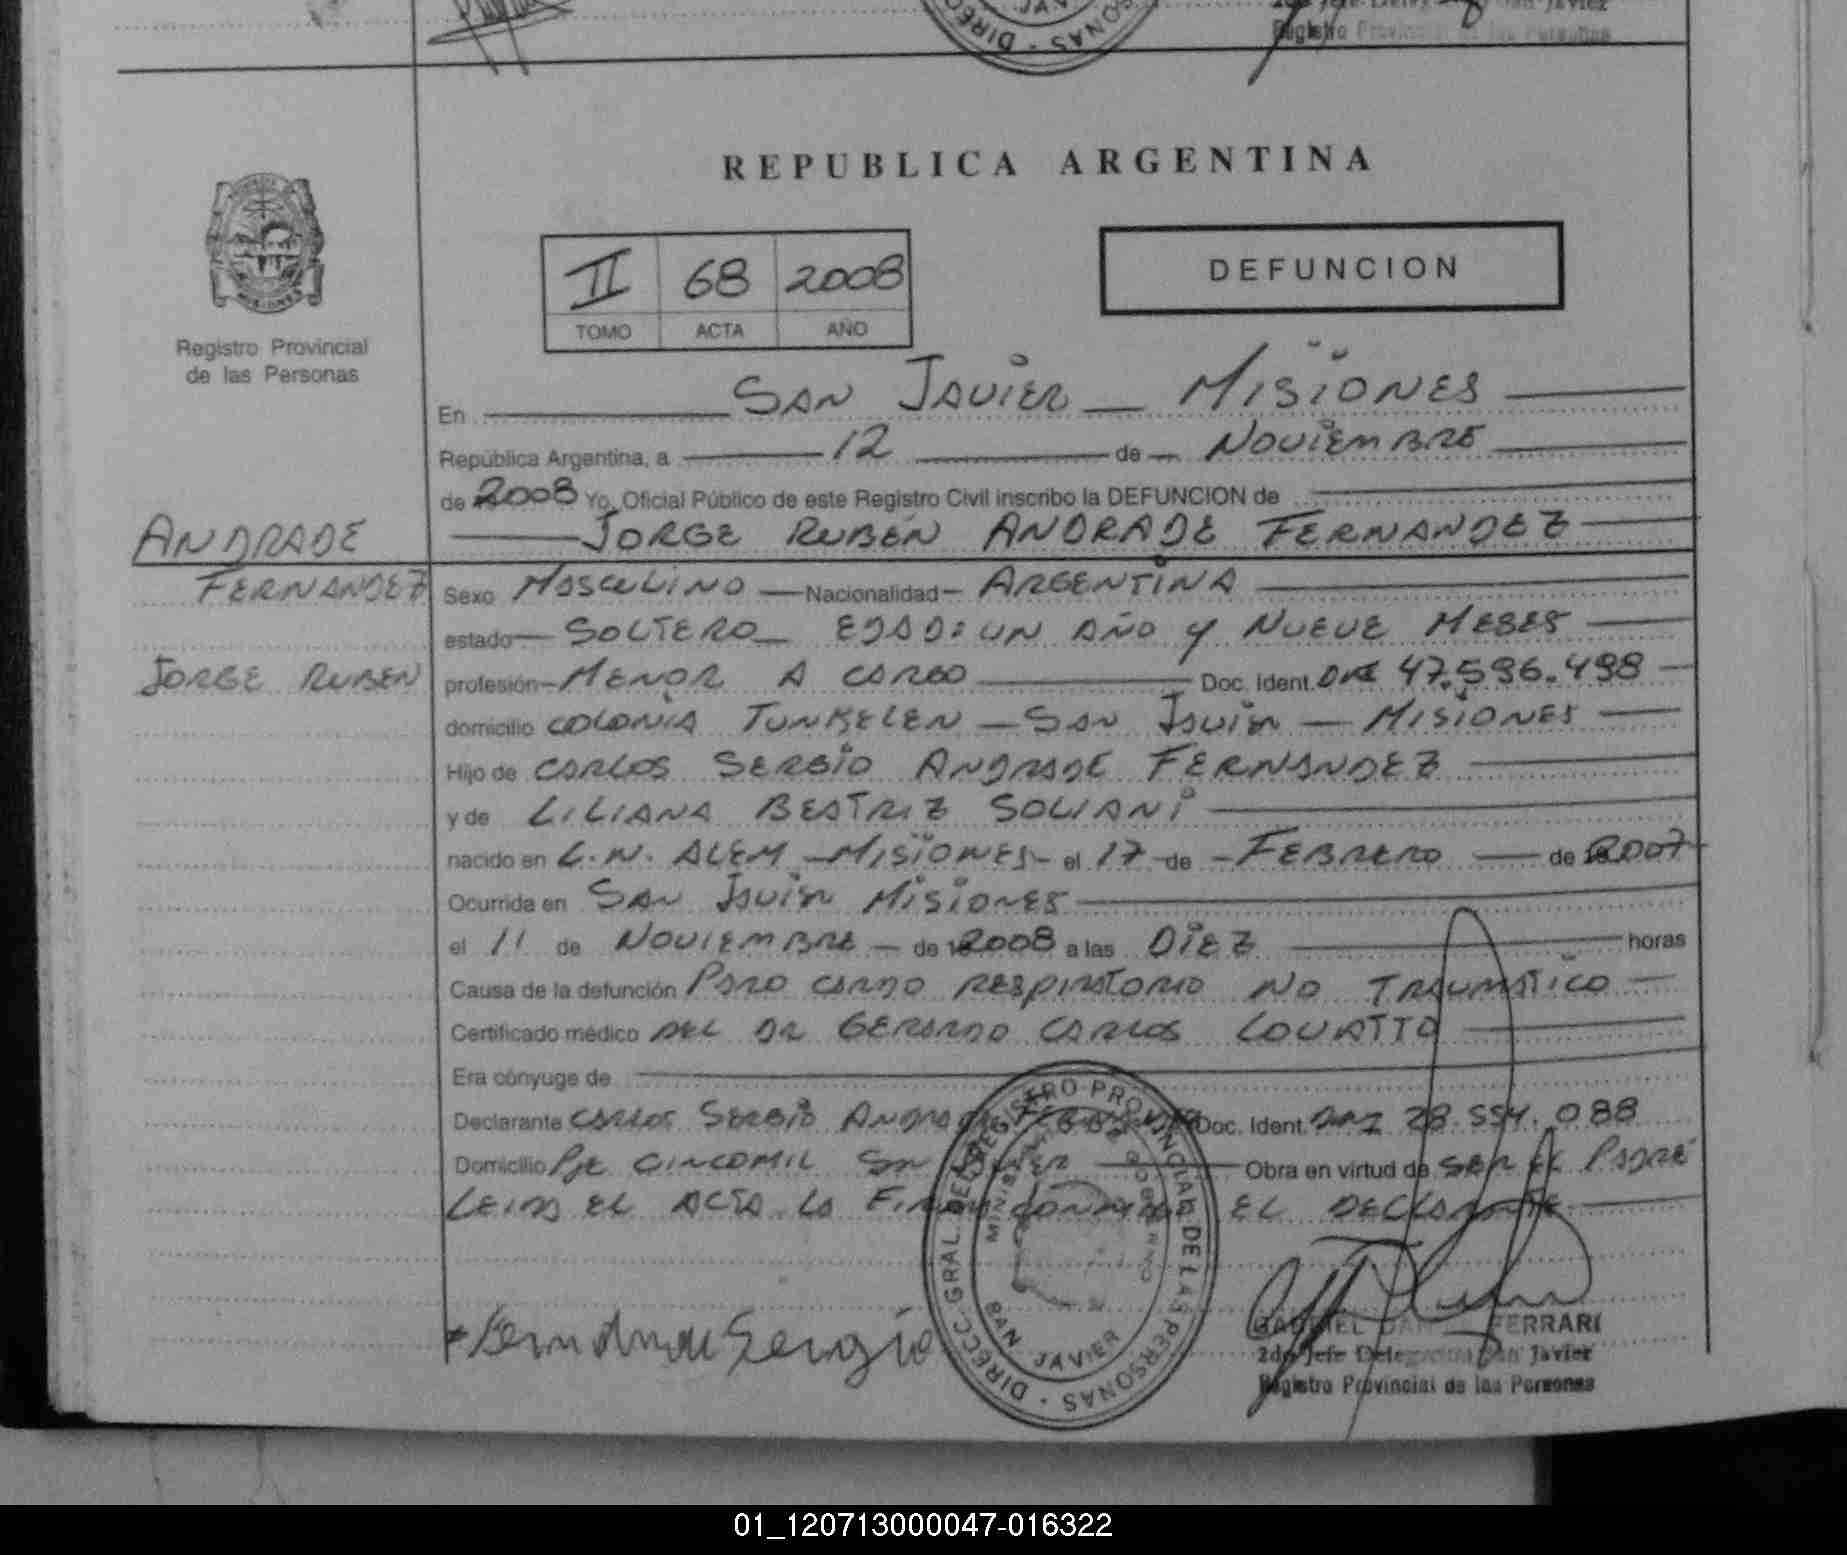 Registro Provincial de las Personas
REPUBLICA ARGENTINA
II 68 2008
TOMO ACTA AÑO
DEFUNCION
MISIONES
Registro Provincial
de las Personas
En SAN JAVIER — MISIONES
República Argentina, a 12 de NOVIEMBRE
de 2008 Yo, Oficial Público de este Registro Civil inscribo la DEFUNCION de
ANDRADE
JORGE RUBEN ANDRADE FERNANDEZ
FERNANDEZ
Sexo MASCULINO — Nacionalidad — ARGENTINA
estado — SOLTERO — EDAD: UN AÑO Y NUEVE MESES
JORGE RUBEN
profesión — MENOR A CARGO — Doc. Ident. DNI 47.596.498
domicilio COLONIA TUNKELEN — SAN JAVIER — MISIONES
Hijo de CARLOS SERGIO ANDRADE FERNANDEZ
y de LILIANA BEATRIZ SOLIANI
nacido en L.N. ALEM — MISIONES — el 17 de — FEBRERO — de 2007
Ocurrida en SAN JAVIER MISIONES
el 11 de NOVIEMBRE — de 2008 a las DIEZ horas
Causa de la defunción PARO CARDIO RESPIRATORIO NO TRAUMATICO
Certificado médico DEL DR GERARDO CARLOS LOVATTO
Era cónyuge de
Declarante CARLOS SERGIO ANDRADE FERNANDEZ Doc. Ident. DNI 28.554.088
Domicilio Pje CINCOMIL SAN JAVIER — Obra en virtud de SER EL PADRE
LEIDA EL ACTA LA FIRMA CONMIGO EL DECLARANTE
DIRECC. GRAL. DEL REGISTRO PROVINCIAL DE LAS PERSONAS
SAN JAVIER
Sergio
GABRIEL FERRARI
2do Jefe Delegación San Javier
Registro Provincial de las Personas
01_120713000047-016322